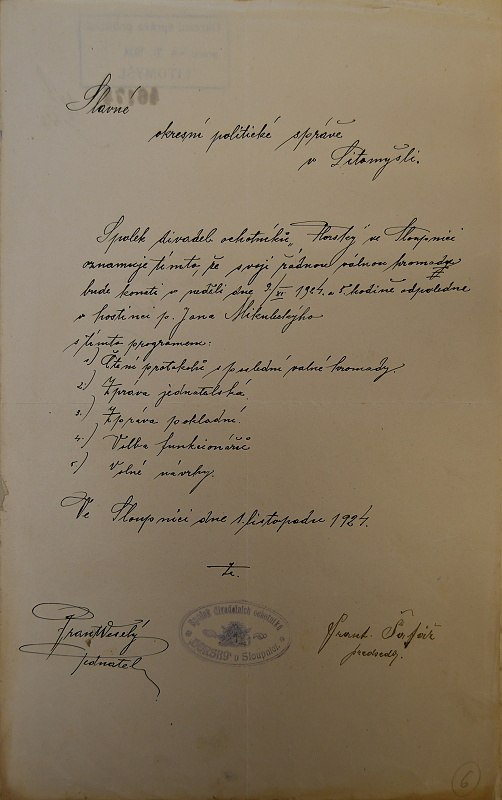 Slavné
okresní politické správě
v Litomyšli.
Spolek divadel. ochotníků „Horský" ve Sloupnici
oznamuje tímto, že svoji řádnou valnou hromadu
bude konati v neděli dne 9/XI 1924. o 1 hodině odpoledne
v hostinci p. Jana
s tímto programem:
1.) Čtení protokolu s poslední valné hromady.
2.) Zpráva jednatelská.
3.) Zpráva pokladní.
4.) Volba funkcionářů
5.) Volné návrhy.
Ve Sloupnici dne 1. listopadu 1924.
Fran Veselý
jednatel
Spolek divadelních ochotníků
„HORSKÝ" v Sloupnici
Frant. Šafář
předseda.
6